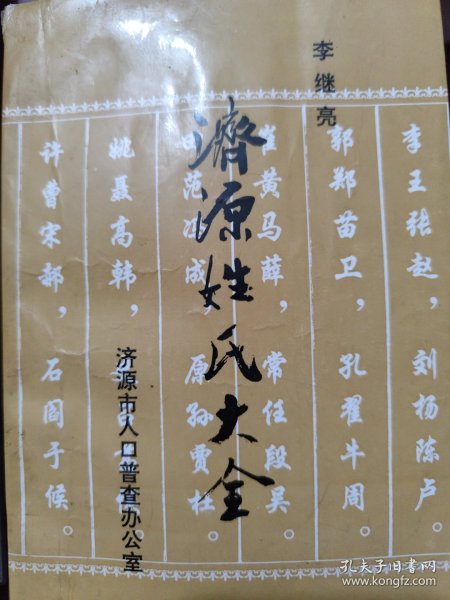 李继亮
濟源姓氏大全
济源市人口普查办公室
李王张赵，刘杨陈卢。
郭郑苗卫，孔翟牛周。
黄马薛，常任段吴。
范冯成，原孙贾杜。
姚聂高韩，
许曹宋郝，石阎于候。
孔夫子旧书网
www.kongfz.com